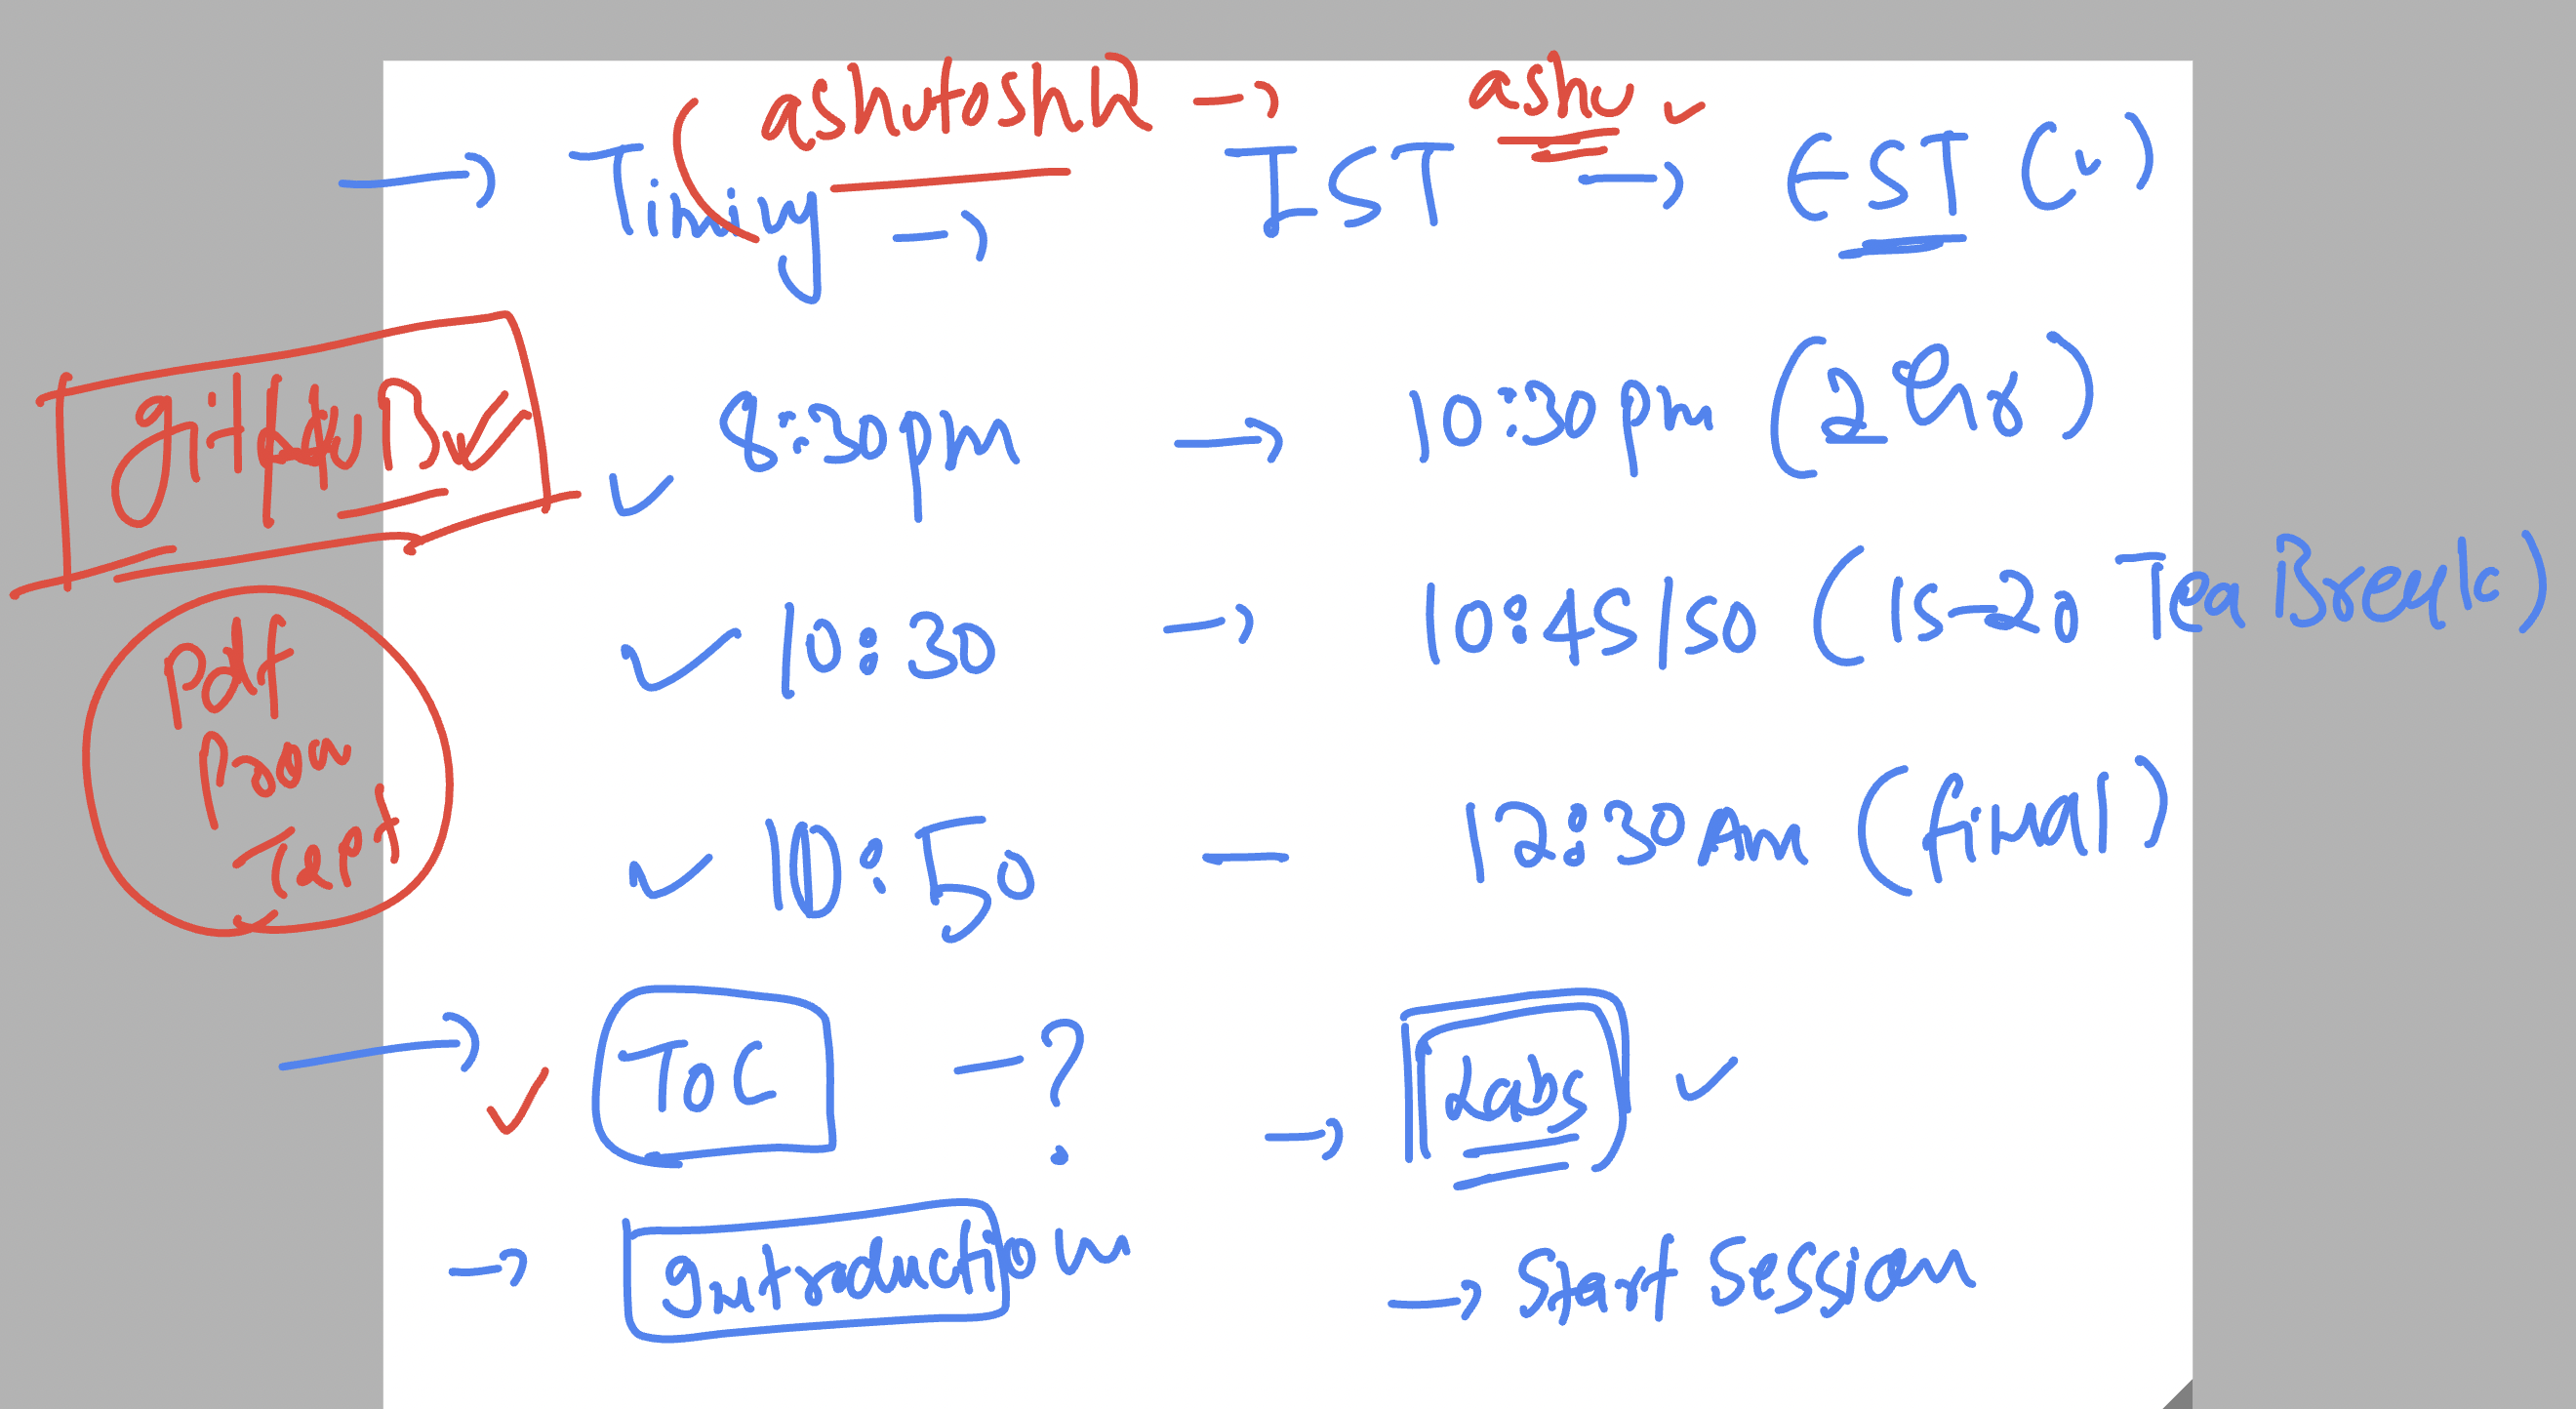 ashutoshh → ashu ✓
→ Timing → IST → EST (✓)
github ✓
✓ 8:30pm → 10:30pm (2 hr)
✓ 10:30 → 10:45/50 (15-20 Tea Break)
pdf
✓ 10:50 — 12:30 Am (final)
→ ✓ ToC -? → Labs ✓
→ Introduction → Start Session